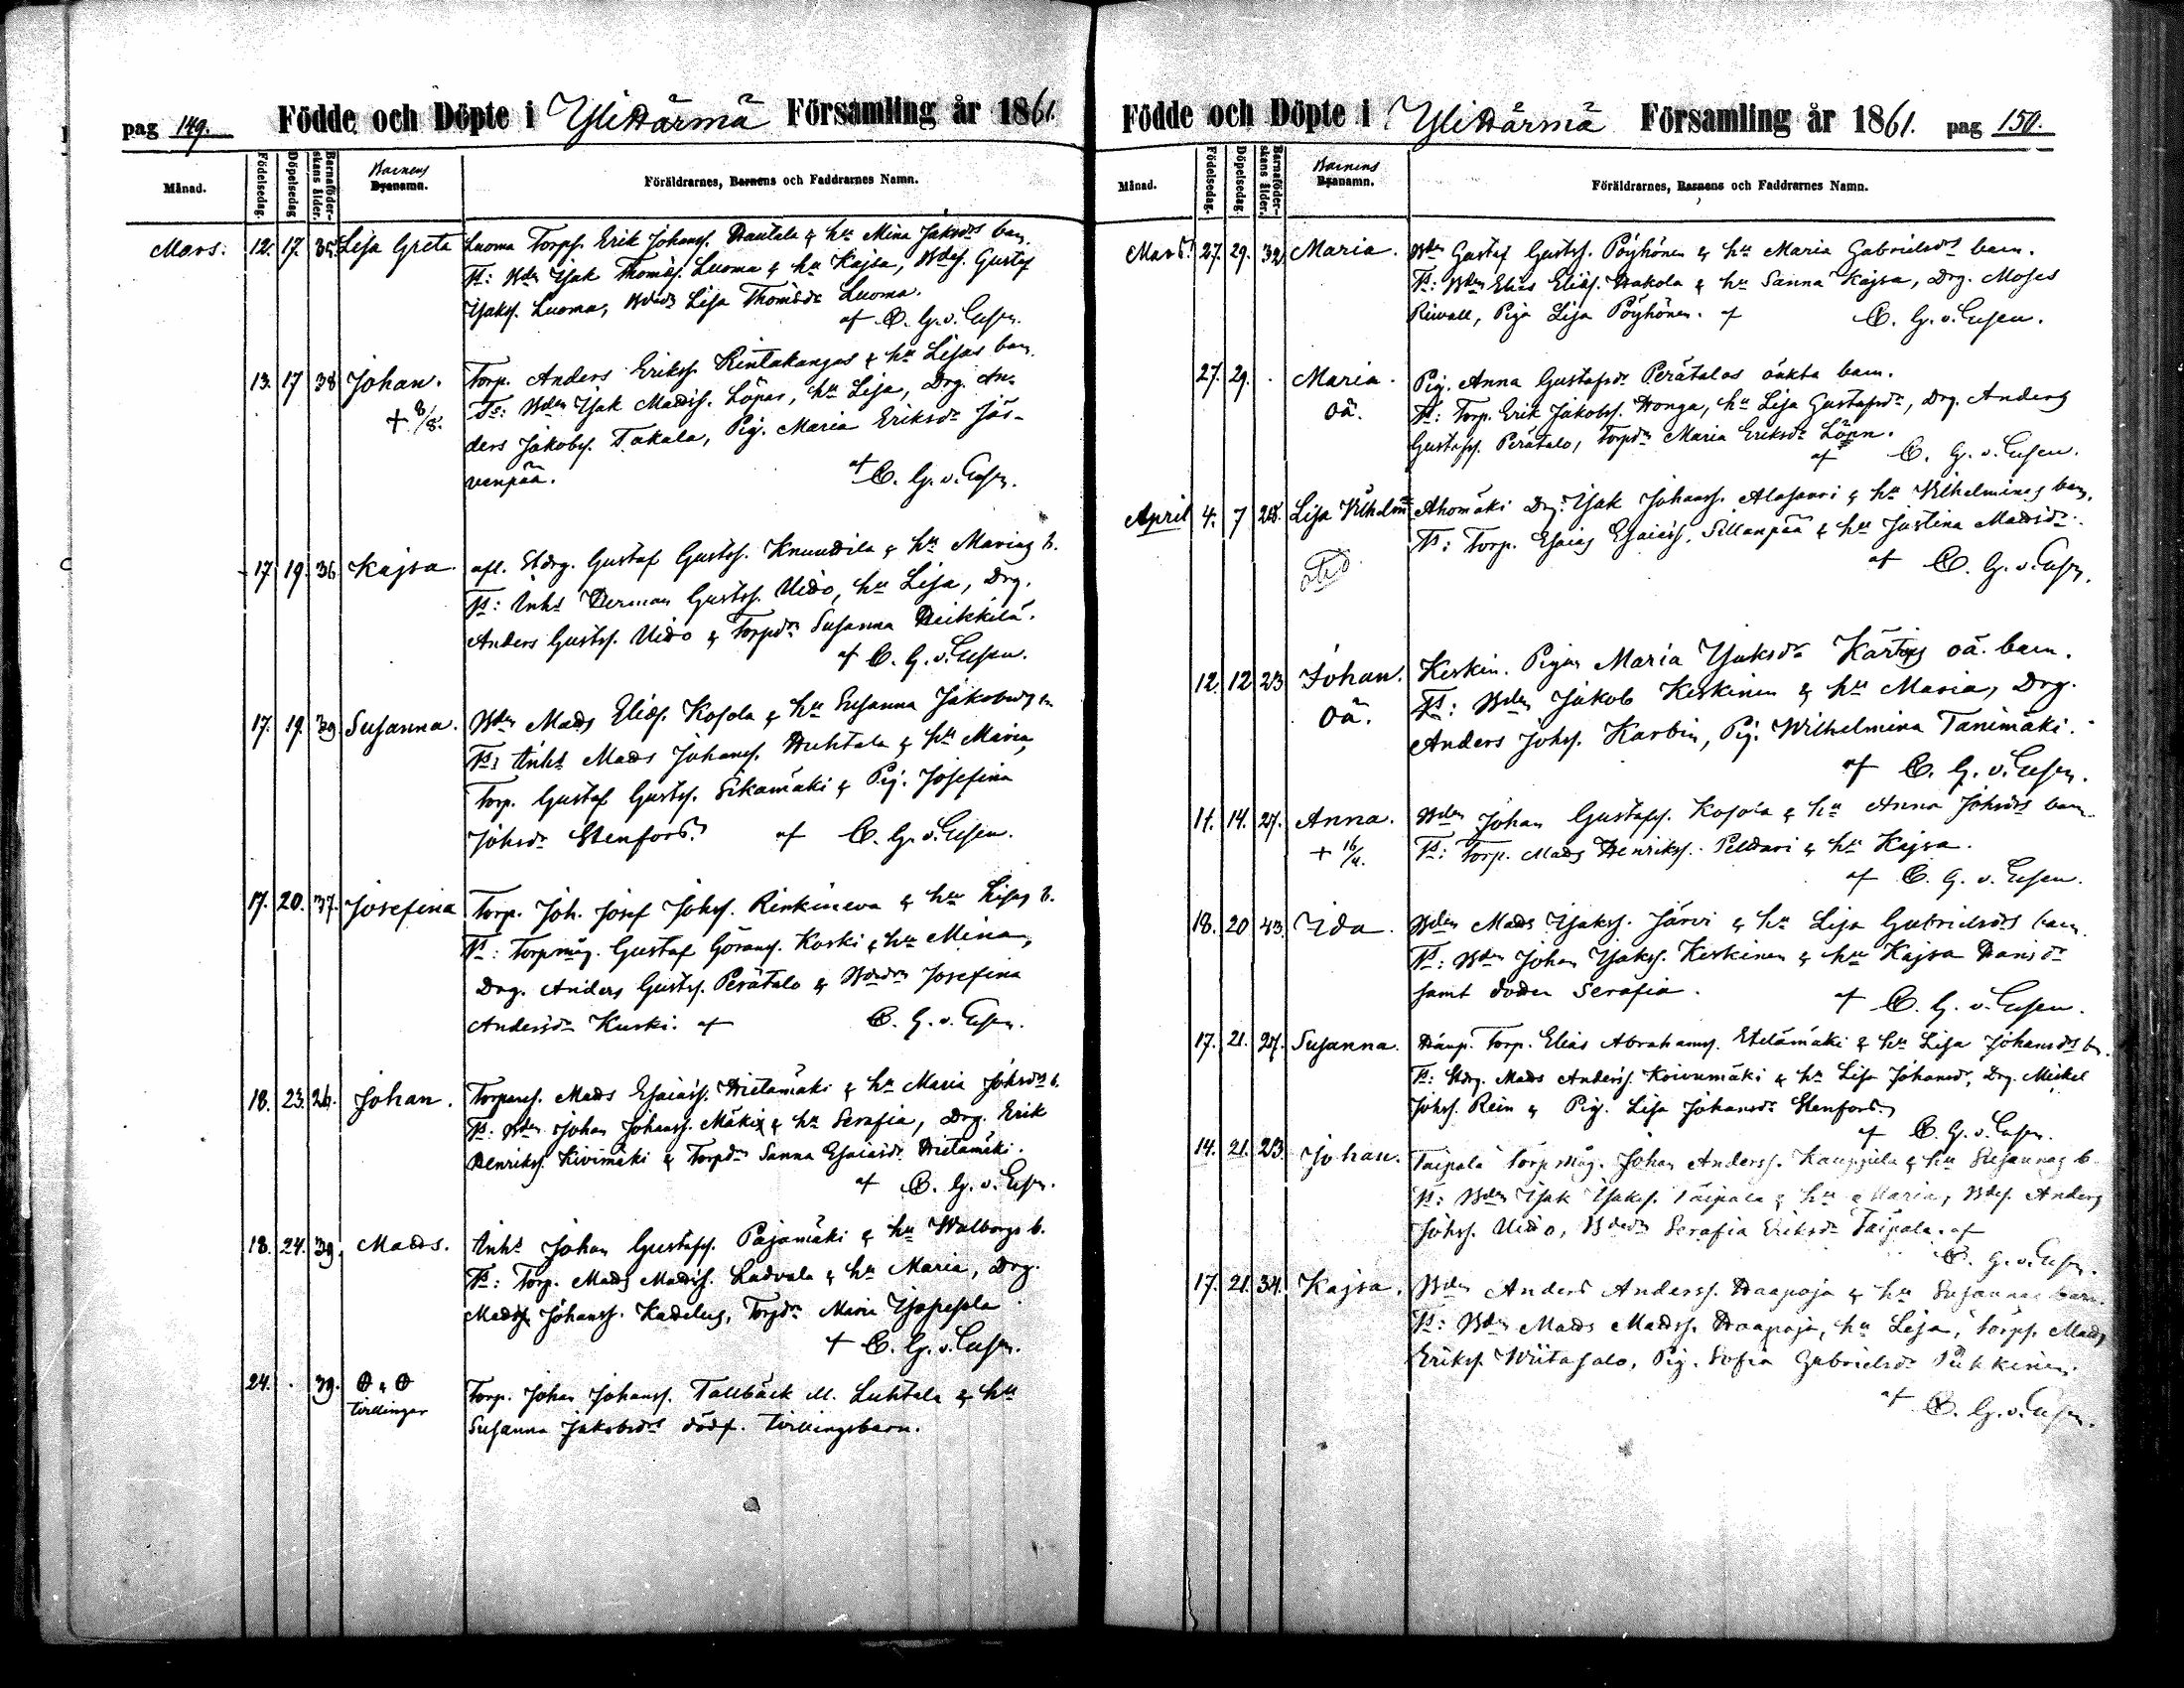 pag 149.
Födde och Döpte i Ylihärmä Församling år 1861.
Månad.
Födelsedag.
Döpelsedag
Barnaföderskans ålder.
Barnens
Byanamn.
Föräldrarnes, Barnens och Faddrarnes Namn.
Mars. 12. 17. 35. Lisa Greta Luoma Torps. Erik Johanss. Hautala & hu Mina Jaksdrs barn.
Fs: Bdn Isak Thomæs. Luoma & hu Kajsa, Bdes. Gustaf
Isaks. Luoma, Bdedr Lisa Thomædr Luoma.
af C. G. v. Essen.
13. 17 38 Johan. Torp. Anders Erikss. Rintakangas & hu Lisas barn.
+ 8/8. Fs: Bdn Isak Madss. Löpas, hu Lisa, Drg. An-
ders Jakobss. Takala, Pig. Maria Eriksdr Jär-
venpää. af C. G. v. Essen.
17. 19. 36 Kajsa. afl. Stdrg. Gustaf Gustfs. Knuuttila & hu Marias b.
Fs: Inhs Herman Gustfs. Uido, hu Lisa, Drg.
Anders Gustfs. Uido & Torpdr Susanna Heikkilä.
af C. G. v. Essen.
17. 19. 39. Susanna. Bdn Mads Eliæs. Kosola & hu Susanna Jakobsdrs bn
Fs: Inhs Mads Johanss. Huhtala & hu Maria,
Torp. Gustaf Gustfs. Sikamäki & Pig. Josefina
Johsdr Stenfors. af C. G. v. Essen.
17. 20. 37. Josefina Torp. Joh. Josef Johss. Rinkineva & hu Lisas b.
Fs: Torpmåg. Gustaf Görans. Koski & hu Mina,
Drg. Anders Gustfs. Perätalo & Bdedr Josefina
Andersdr Kuski. af C. G. v. Essen.
18. 23. 26. Johan. Torpares. Mads Esaiass. Hietamäki & hu Maria Johsdrs b.
Fs: Bdn Johan Johanss. Mäki & hu Serafia, Drg. Erik
Henrikss. Kivimäki & Torpdr Sanna Esaiasdr Hietamäki.
af C. G. v. Essen.
18. 24. 39. Mads. Inhs Johan Gustafss. Pajamäki & hu Walborgs b.
Fs: Torp. Mads Madss. Ladvala & hu Maria, Drg.
Mads Johanss. Kadelus, Torpdr Maria
af C. G. v. Essen.
24. . 39. Torp. Johan Johanss. Tallbäck l. Luhtala & hu
tvillingar Susanna Jakobsdrs dödf. tvillingsbarn.
Födde och Döpte i Ylihärmä Församling år 1861. pag 150.
Månad.
Födelsedag.
Döpelsedag
Barnaföderskans ålder.
Barnens
Byanamn.
Föräldrarnes, Barnens och Faddrarnes Namn.
Mars. 27. 29. 32 Maria. Bdn Gustaf Gustfs. Pöyhönen & hu Maria Gabrielsdrs barn.
Fs: Bdn Elias Eliæs. Hakola & hu Sanna Kajsa, Drg. Moses
Riuvall, Piga Lisa Pöyhönen. af C. G. v. Essen.
27. 29. . Maria. Pig. Anna Gustafsdr Perätalos oäkta barn.
oä. Fs: Torp. Erik Jakobss. Honga, hu Lisa Gustafsdr, Drg. Anders
Gustafss. Perätalo, Torpdr Maria Eriksdr Lönn.
af C. G. v. Essen.
April 4. 7 28. Lisa Vilhelm Ahomäki Drg. Isak Johanss. Alasaari & hu Vilhelminas barn.
Fs: Torp. Esaias Esaiass. Sillanpää & hu Justina Madsdr.
af C. G. v. Essen.
12. 12 23 Johan. Keskin. Pigan Maria Isaksdr Kärtys oä. barn.
oä. Fs: Bdn Jakob Keskinen & hu Maria, Drg.
Anders Johss. Karbin, Pig. Wilhelmina Tanimäki.
af C. G. v. Essen.
11. 14. 27. Anna. Bdn Johan Gustafss. Kosola & hu Anna Johsdrs barn
+ 16/4. Fs: Torp. Mads Henrikss. Peldari & hu Kajsa.
af C. G. v. Essen.
18. 20 43. Ida. Bdn Mads Isakss. Järvi & hu Lisa Gabrielsdrs barn
Fs: Bdn Johan Isakss. Keskinen & hu Kajsa Hansdr
samt dotter Serafia. af C. G. v. Essen.
17. 21. 27. Susanna. Haap. Torp. Elias Abrahams. Etelämäki & hu Lisa Johansdrs bn.
Fs: Stdrg. Mads Anderss. Koivumäki & hu Lisa Johansdr, Drg. Mickel
Johss. Rein & Pig. Lisa Johansdr Stenfors.
af C. G. v. Essen.
14. 21. 23. Johan. Taipala Torpmåg. Johan Anderss. Kauppila & hu Susannas b.
Fs: Bdn Isak Isakss. Taipala & hu Maria, Bdes. Anders
Johss. Uido, Bdedr Serafia Eriksdr Taipala. af
C. G. v. Essen.
17. 21. 34. Kajsa. Bdn Anders Anderss. Haapoja & hu Susannas barn.
Fs: Bdn Mads Madss. Haapoja, hu Lisa, Torps. Mads
Erikss. Wiitasalo, Pig. Sofia Gabrielsdr Puhkinen.
af C. G. v. Essen.